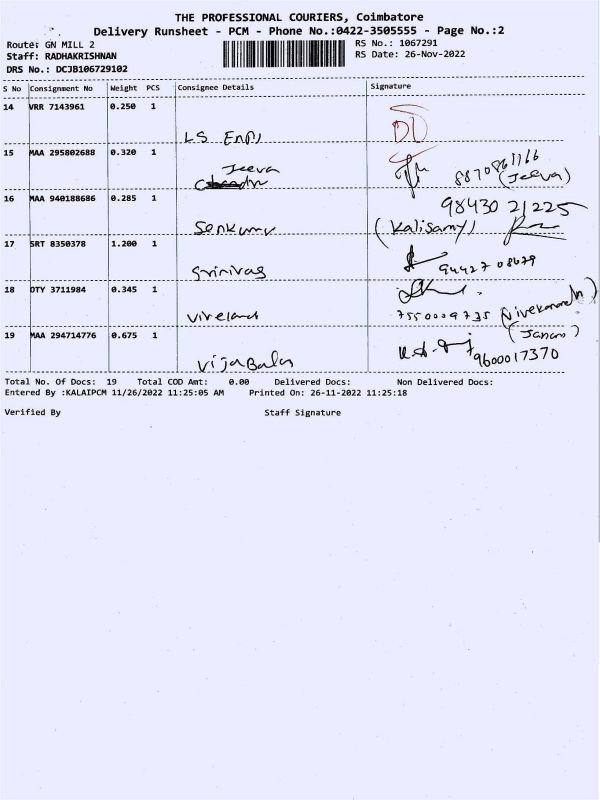 THE PROFESSIONAL COURIERS, Coimbatore
Delivery Runsheet - PCM - Phone No.:0422-3505555 - Page No.:2
Route: GN MILL 2 RS No.: 1067291
Staff: RADHAKRISHNAN RS Date: 26-Nov-2022
DRS No.: DCJB106729102
S No Consignment No Weight PCS Consignee Details Signature
14 VRR 7143961 0.250 1
LS
15 MAA 295802688 0.320 1
Jeeva 8870861166
(Jeeva)
16 MAA 940188686 0.285 1
9843021225
(Kalisamy)
17 SRT 8350378 1.200 1
Srinivas 9442708679
18 OTY 3711984 0.345 1
7550009735
19 MAA 294714776 0.675 1
VijaBalan 9600017370
Total No. Of Docs: 19 Total COD Amt: 0.00 Delivered Docs: Non Delivered Docs:
Entered By :KALAIPCM 11/26/2022 11:25:05 AM Printed On: 26-11-2022 11:25:18
Verified By Staff Signature